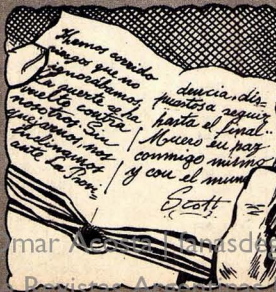 Hemos corrido
riesgos que no
ignorábamos.
La suerte se ha
vuelto contra
nosotros. Sin
quejarnos, nos
inclinamos
ante la Provi-
dencia, dis-
puestos a seguir
hasta el final.
Muero en paz
conmigo mismo
y con el mundo
Scott
mar Acosta | fanasdes
Revistas Argentinas